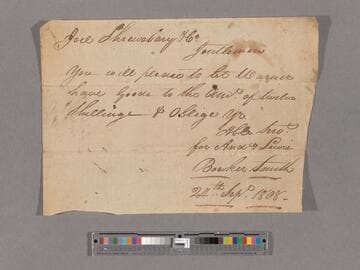 Joel Shrewsbury & Co
Gentlemen
You will please to let Warner
have Goods to the Amt. of twelve
Shillings & Oblige Yr
Hble Servt.
for And. & Lewis
Bowker Smith
24th Sepr. 1808